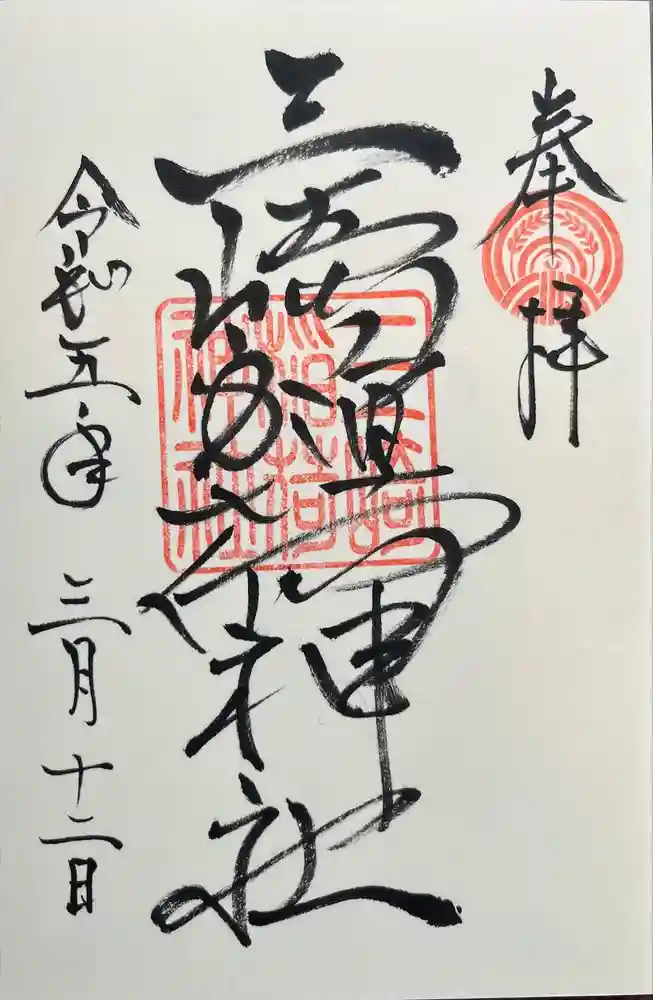 奉拝
三崎稲荷神社
令和五年 三月十二日